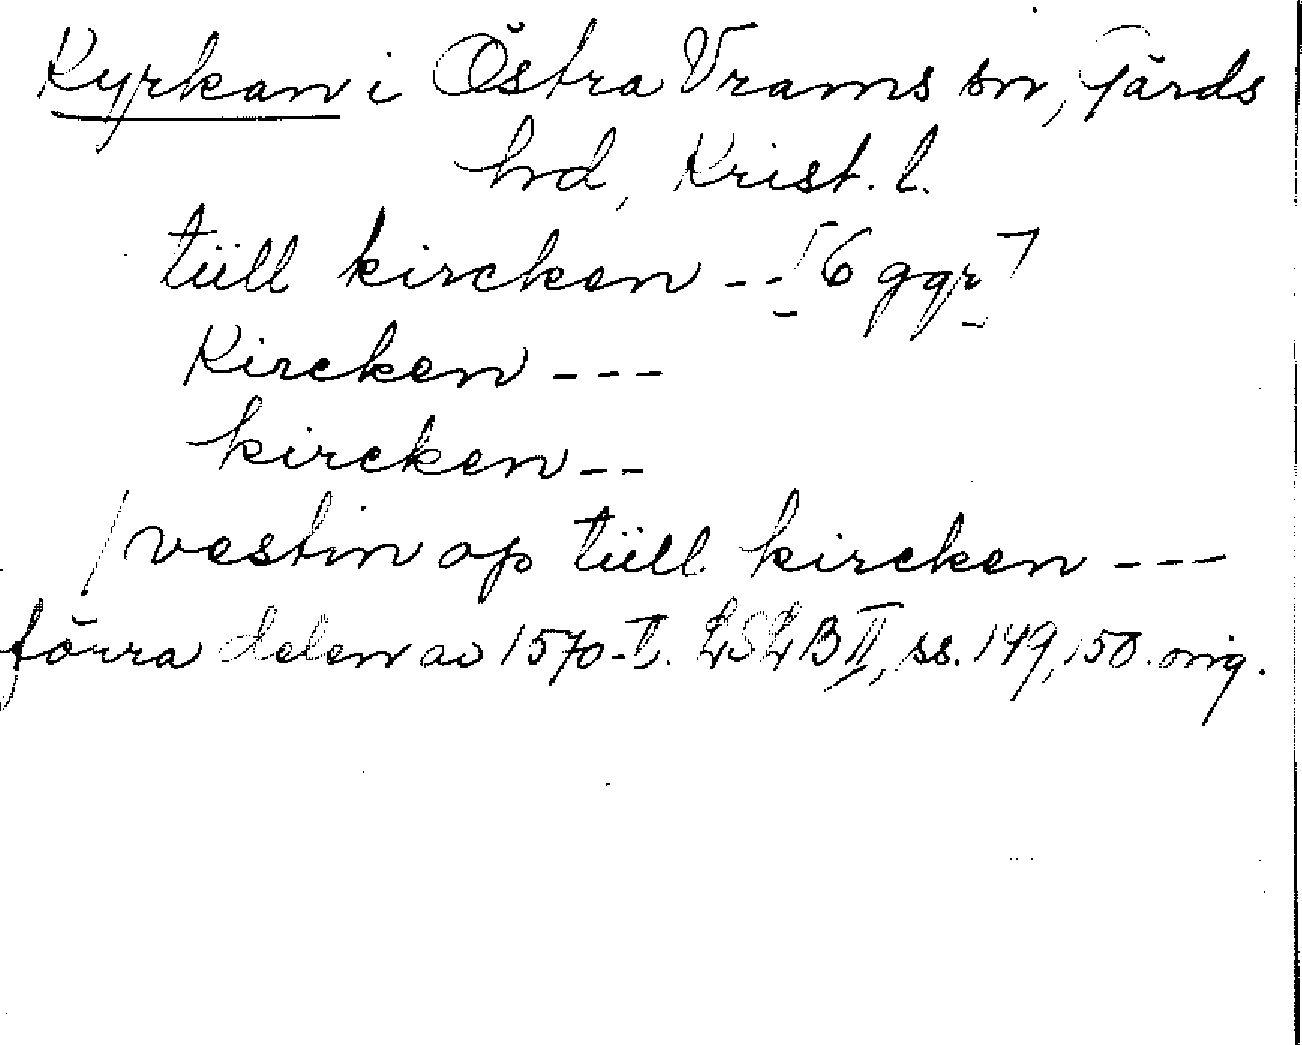 Kyrkan i Östra Vrams sn, Gärds
hd, Krist. l.
tüll kircken -- [6 ggr]
Kircken ---
kircken --
/ vestin op tüll kircken ---
förra delen av 1570-t. LSLB II, ss. 149, 150. orig.